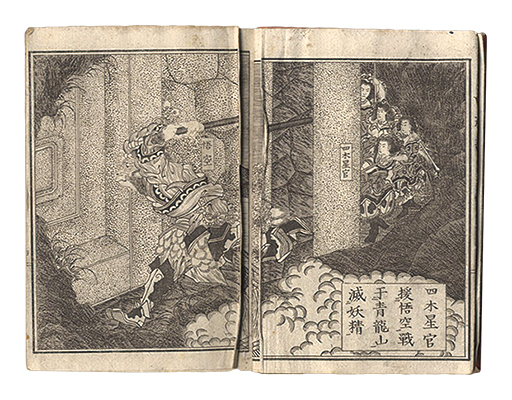 四木星官
援悟空戰
于青龍山
滅妖精
四木星官
悟空